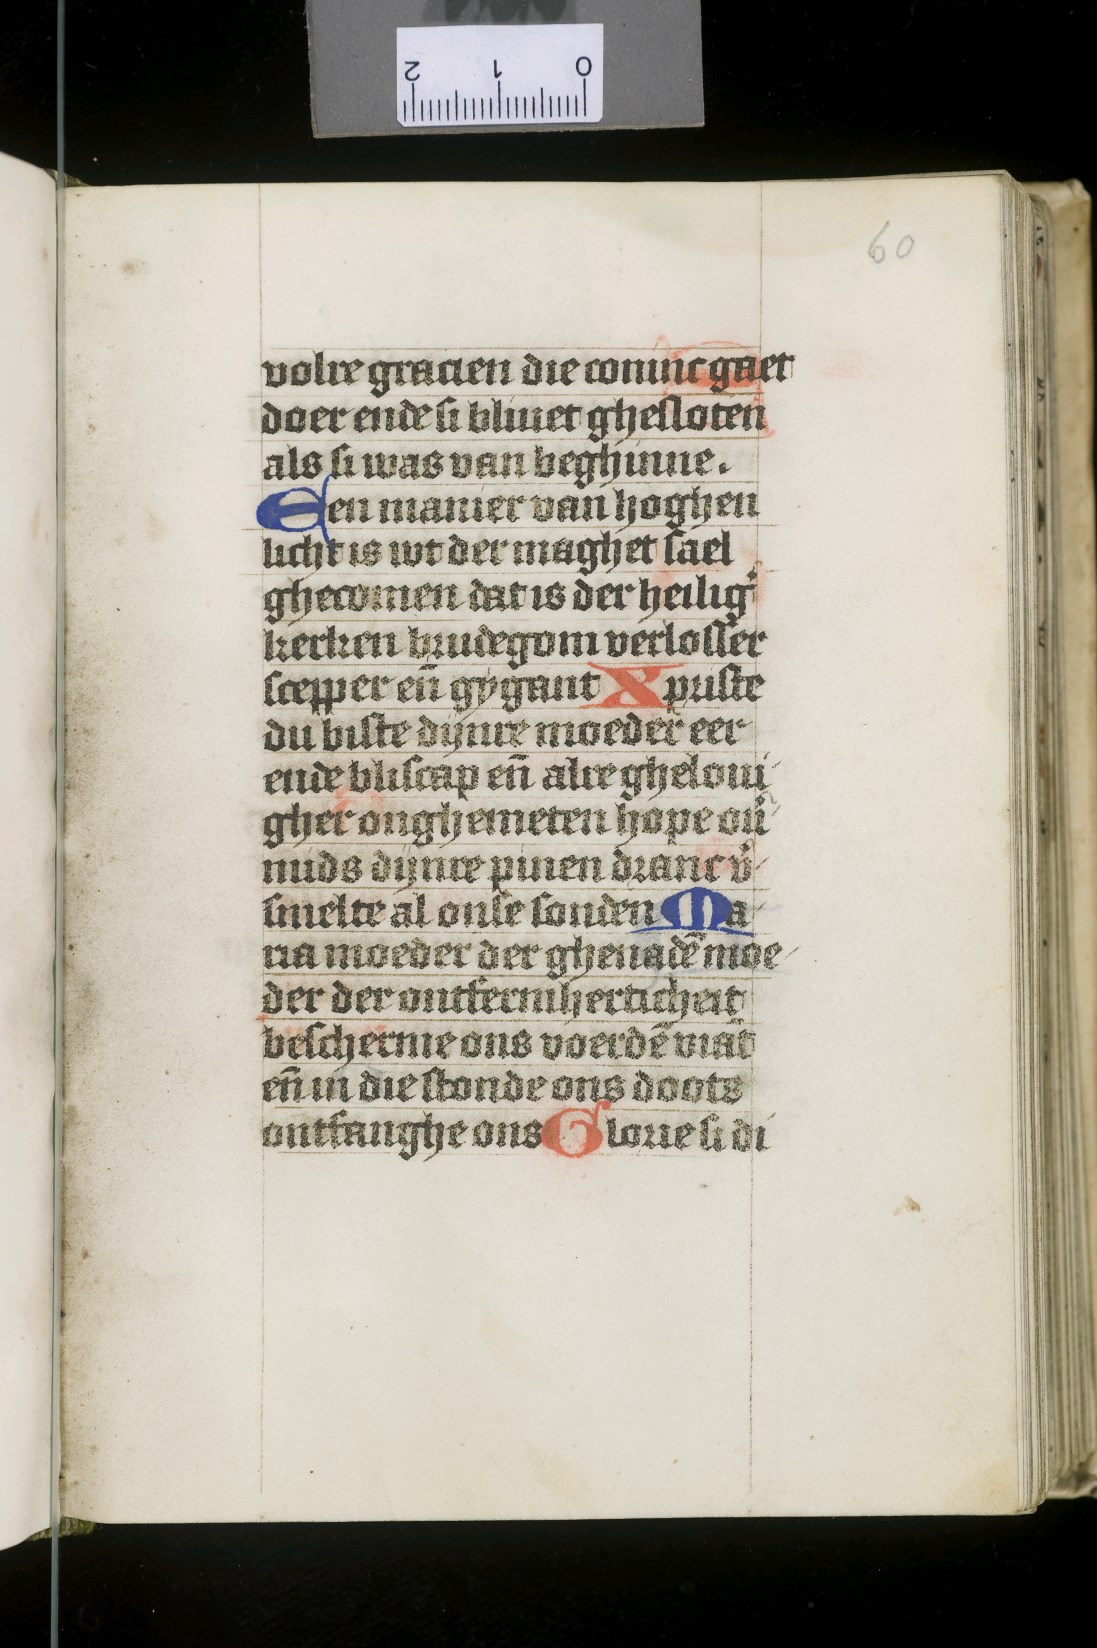 2 1 0
60
volre gracien die coninc gaet
doer ende si bliuet ghesloten
als si was van beghinne.
Een manier van hoghen
licht is wt der maghet sael
ghecomen dat is der heilig̉
kerken brudegom verlosser
scepper en̄ gygant Xpriste
du biste dijnre moeder eer
ende bliscap en̄ alre gheloui
gher onghemeten hope oủ
mids dijnre pinen dranc v̉
smelte al onse sonden Ma
ria moeder der ghenadē moe
der der ontfermherticheit
bescherme ons voerdē viāt
en̄ in die stonde ons doots
ontfanghe ons Glorie si di